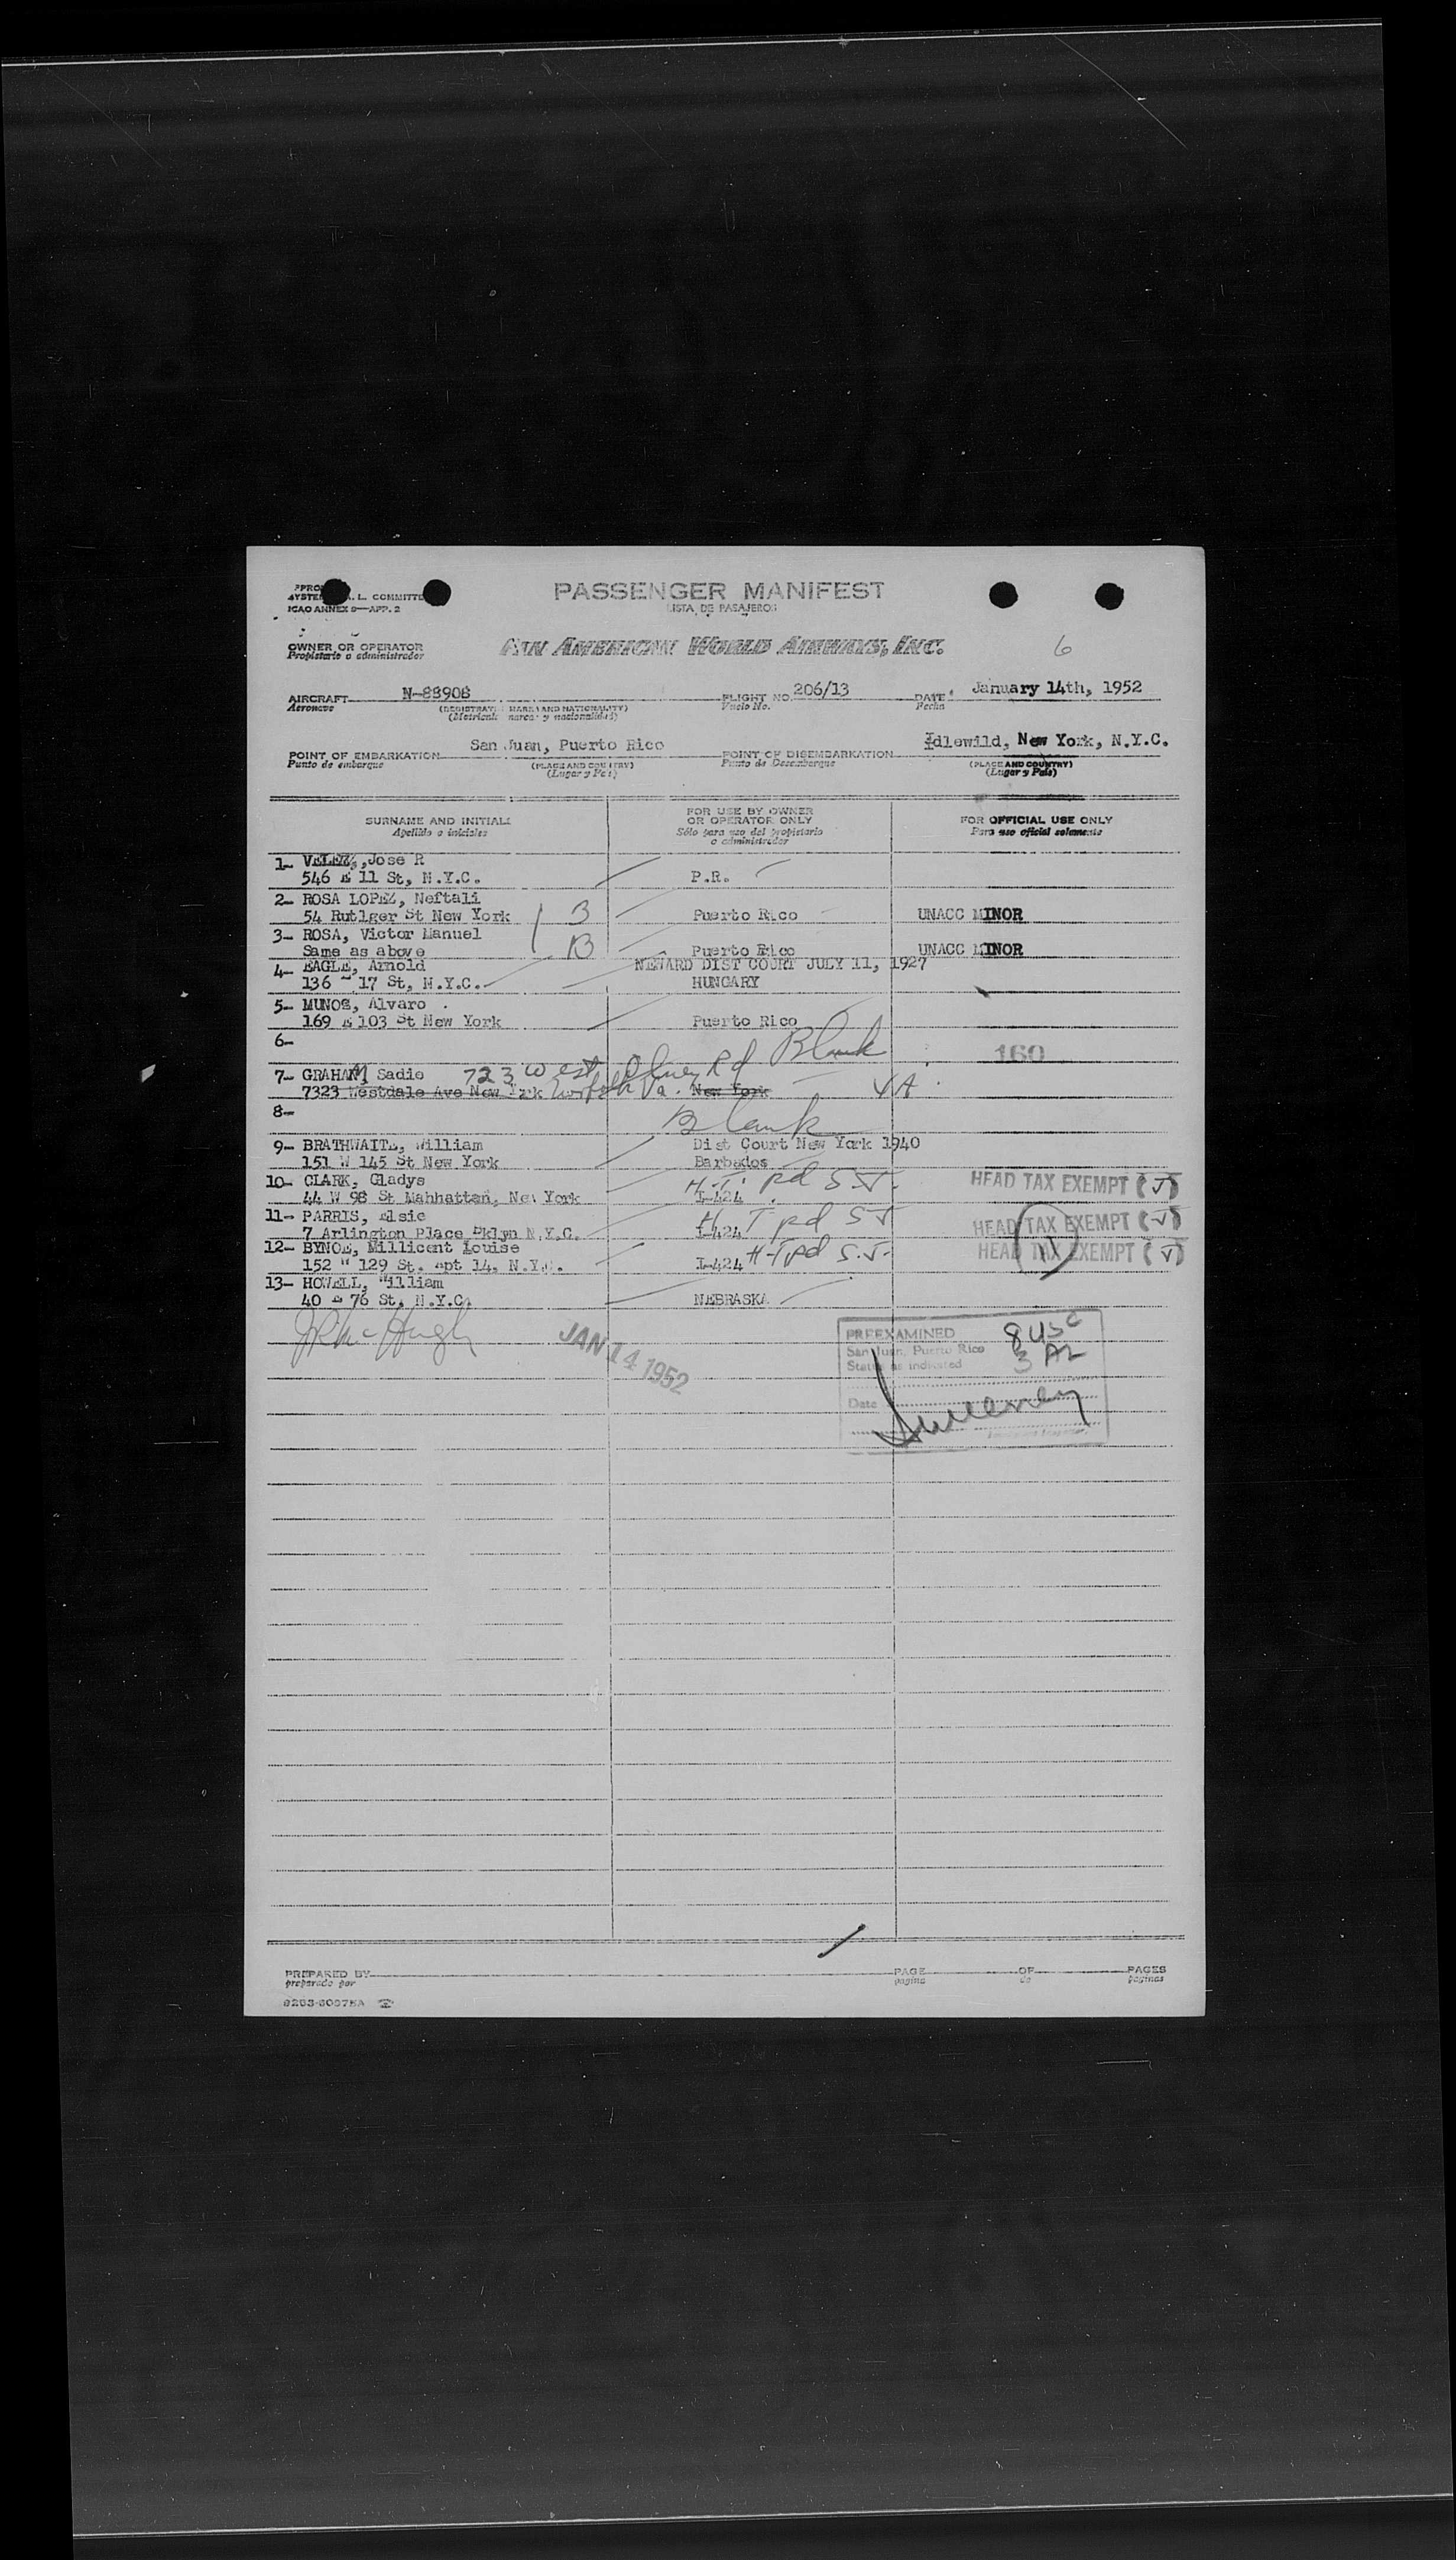 PASSENGER MANIFEST
LISTA DE PASAJEROS
L. COMMITTE
ICAO ANNEX 9—APP. 2
OWNER OR OPERATOR
Propietario o administrador
PAN AMERICAN WORLD AIRWAYS, INC.
6
AIRCRAFT N-88908 FLIGHT NO. 206/13 DATE January 14th, 1952
Aeronave Vuelo No. Fecha
POINT OF EMBARKATION San Juan, Puerto Rico POINT OF DISEMBARKATION Idlewild, New York, N.Y.C.
Punto de embarque (Lugar y País) Punto de Desembarque (PLACE AND COUNTRY)
(Lugar y País)
SURNAME AND INITIALS
Apellido e iniciales
FOR USE BY OWNER
OR OPERATOR ONLY
Sólo para uso del propietario
o administrador
FOR OFFICIAL USE ONLY
Para uso oficial solamente
1- VELEZ, Jose R
546 E 11 St, N.Y.C. P.R.
2- ROSA LOPEZ, Neftali
54 Rutlger St New York 3 Puerto Rico UNACC MINOR
3- ROSA, Victor Manuel
Same as above 13 Puerto Rico UNACC MINOR
4- EAGLE, Arnold NEWARD DIST COURT JULY 11, 1927
136 17 St, N.Y.C. HUNGARY
5- MUNOS, Alvaro
169 E 103 St New York Puerto Rico
6- Blank 160
7- GRAHAM, Sadie 723 West Olney Rd
7323 Westdale Ave New York Norfolk Va. New York VA
8- Blank
9- BRATHWAITE, William Dist Court New York 1940
151 W 145 St New York Barbados
10- CLARK, Gladys H.T. pd S.J. HEAD TAX EXEMPT (√)
44 W 98 St Mahhattan, New York I-424
11- PARRIS, Elsie H T pd S J HEAD TAX EXEMPT (√)
7 Arlington Place Bklyn N.Y.C. I-424
12- BYNOE, Millicent Louise H-T pd S.J. HEAD TAX EXEMPT (√)
152 W 129 St. Apt 14, N.Y.C. I-424
11
13- HOWELL, William
40 E 76 St, N.Y.C. NEBRASKA
JAN 14 1952
PREEXAMINED 8 USC
San Juan, Puerto Rico 3 AL
Status as indicated
Date
Sweeney
PREPARED BY PAGE OF PAGES
preparado por pagina de paginas